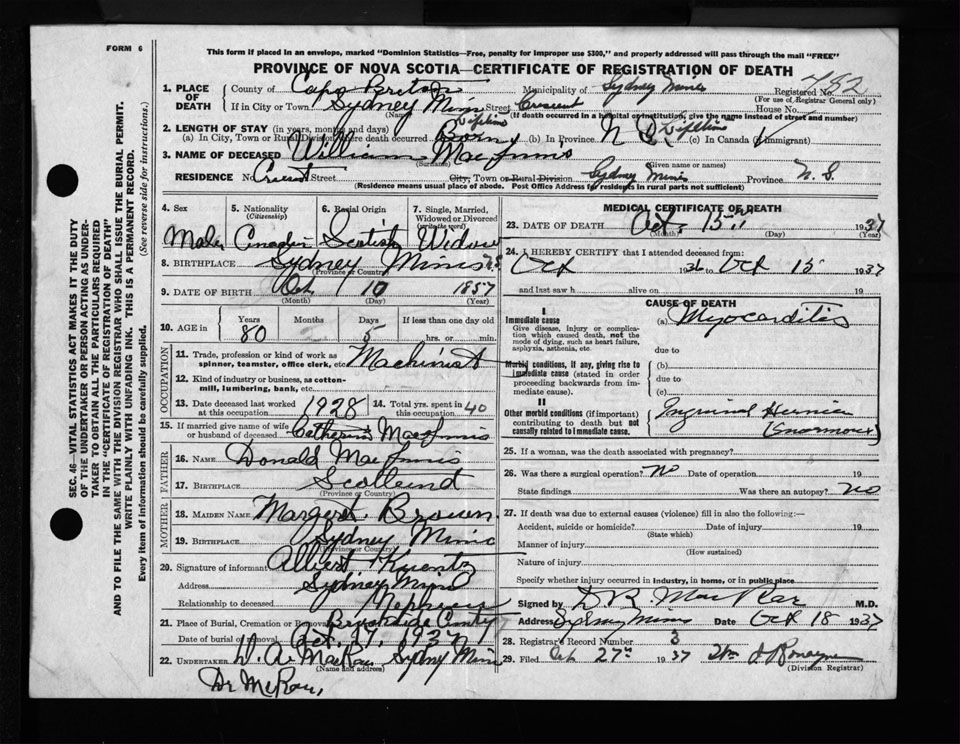 FORM 6
This form if placed in an envelope, marked "Dominion Statistics—Free, penalty for improper use $300," and properly addressed will pass through the mail "FREE"
PROVINCE OF NOVA SCOTIA—CERTIFICATE OF REGISTRATION OF DEATH
SEC. 46—VITAL STATISTICS ACT MAKES IT THE DUTY
OF THE UNDERTAKER OR PERSON ACTING AS UNDER-
TAKER TO OBTAIN ALL THE PARTICULARS REQUIRED
IN THE "CERTIFICATE OF REGISTRATION OF DEATH"
AND TO FILE THE SAME WITH THE DIVISION REGISTRAR WHO SHALL ISSUE THE BURIAL PERMIT.
WRITE PLAINLY WITH UNFADING INK. THIS IS A PERMANENT RECORD.
Every item of information should be carefully supplied. (See reverse side for instructions.)
1. PLACE OF DEATH County of Cape Breton Municipality of Sydney Mines Registered No. 752
(For use of Registrar General only)
If in City or Town Sydney Mines Street Crescent House No.
(Name) (If death occurred in a hospital or institution, give the name instead of street and number)
2. LENGTH OF STAY (in years, months and days)
(a) In City, Town or Rural Division where death occurred Born Lifetime (b) In Province N S Lifetime (c) In Canada (if immigrant)
3. NAME OF DECEASED William MacInnis
(Surname) (Given name or names)
RESIDENCE No. Crescent Street City, Town or Rural Division Sydney Mines Province N. S.
(Residence means usual place of abode. Post Office Address for residents in rural parts not sufficient)
4. Sex 5. Nationality (Citizenship) 6. Racial Origin 7. Single, Married, Widowed or Divorced (write the word)
Male Canadian Scotish Widow
8. BIRTHPLACE Sydney Mines N.S
(Province or Country)
9. DATE OF BIRTH Oct 10 1857
(Month) (Day) (Year)
10. AGE in Years Months Days If less than one day old
80 5 hrs. or min.
OCCUPATION
11. Trade, profession or kind of work as spinner, teamster, office clerk, etc. Machinist
12. Kind of industry or business, as cotton-mill, lumbering, bank, etc.
13. Date deceased last worked at this occupation 1928 14. Total yrs. spent in this occupation 40
15. If married give name of wife or husband of deceased Catherine MacInnis
FATHER
16. NAME Donald MacInnis
17. BIRTHPLACE Scotland
(Province or Country)
MOTHER
18. MAIDEN NAME Margert Brown
19. BIRTHPLACE Sydney Mines
(Province or Country)
20. Signature of informant Albert
Address Sydney Mines
Relationship to deceased Nephew
21. Place of Burial, Cremation or Removal Brookside
Date of burial or removal Oct. 17, 1937
22. UNDERTAKER D. A. MacRae. Sydney Mines
(Name and address)
Dr McRae,
MEDICAL CERTIFICATE OF DEATH
23. DATE OF DEATH Oct. 15th 1937
(Month) (Day) (Year)
24. I HEREBY CERTIFY that I attended deceased from:
Oct 1936 to Oct 15 1937
and last saw h alive on 19
CAUSE OF DEATH
I
Immediate cause (a) Myocarditis
Give disease, injury or complication which caused death, not the mode of dying, such as heart failure, asphyxia, asthenia, etc.
due to
Morbid conditions, if any, giving rise to immediate cause (stated in order proceeding backwards from immediate cause). (b)
due to
(c)
II
Other morbid conditions (if important) contributing to death but not causally related to immediate cause. Inguinal Hernia
(Enormous)
25. If a woman, was the death associated with pregnancy?
26. Was there a surgical operation? No Date of operation 19
State findings Was there an autopsy? no
27. If death was due to external causes (violence) fill in also the following:—
Accident, suicide or homicide? Date of injury 19
(State which)
Manner of injury
(How sustained)
Nature of injury
Specify whether injury occurred in industry, in home, or in public place
Signed by D. R. MacRae M.D.
Address Sydney Mines Date Oct 18 1937
28. Registrar's Record Number 3
29. Filed Oct 27th 1937
(Division Registrar)